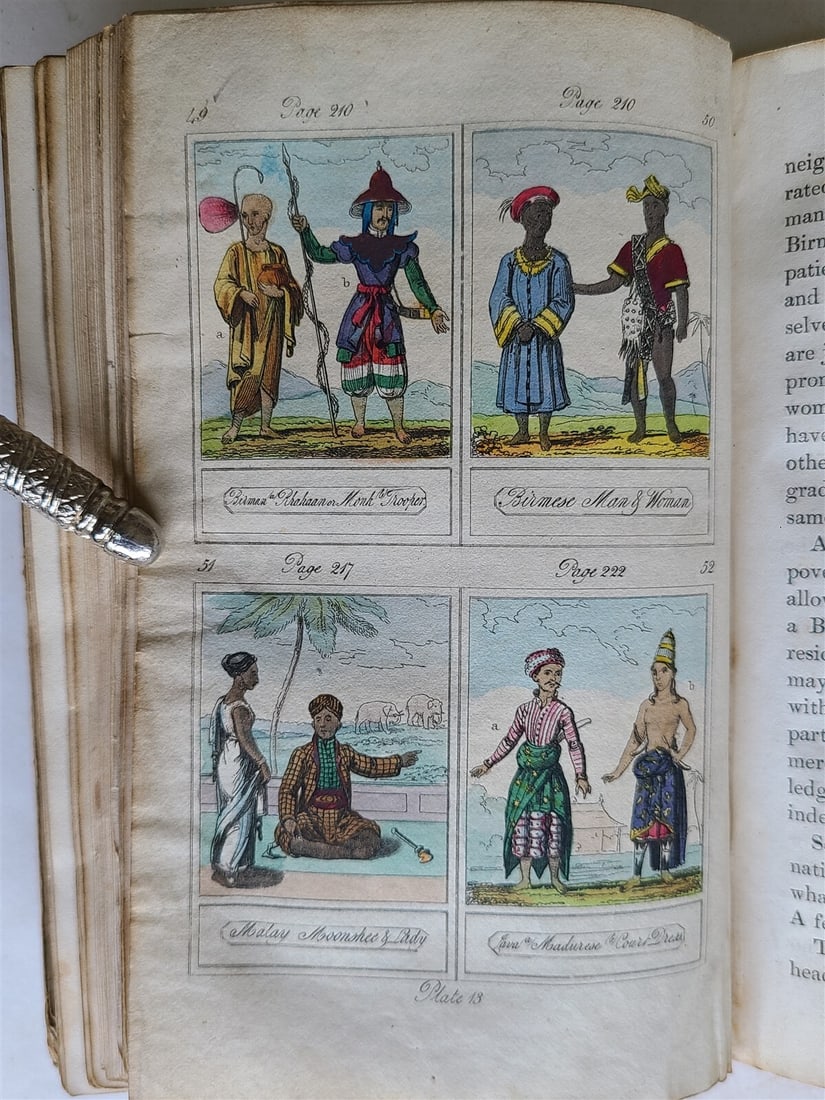 49 Page 210 Page 210 50
a
b
Birman a Rhahaan or Monk b Trooper
Birmese Man & Woman
51 Page 217 Page 222 52
a
b
Malay Moonshee & Lady
Java a Madurese b Court Dress
Plate 13
neig
rated
man
Birn
patie
and
selve
are j
pron
wom
have
othe
grad
same
A
pove
allow
a B
resid
may
with
part
mer
ledg
inde
S
nati
what
A fe
T
head